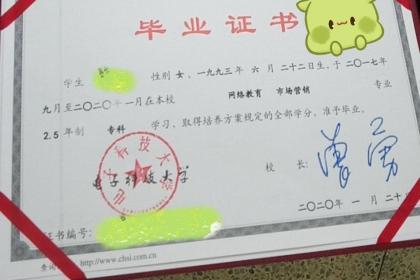 毕业证书
学生 性别 女，一九九三年 六 月 二十二日生，于 二〇一七年
九月至二〇二〇年 一月在本校 网络教育 市场营销 专业
2.5 年制 专科 学习，取得培养方案规定的全部学分，准予毕业。
电子科技大学
校 长：
二〇二〇年 一 月 二十
证书编号：
http://www.chsi.com.cn